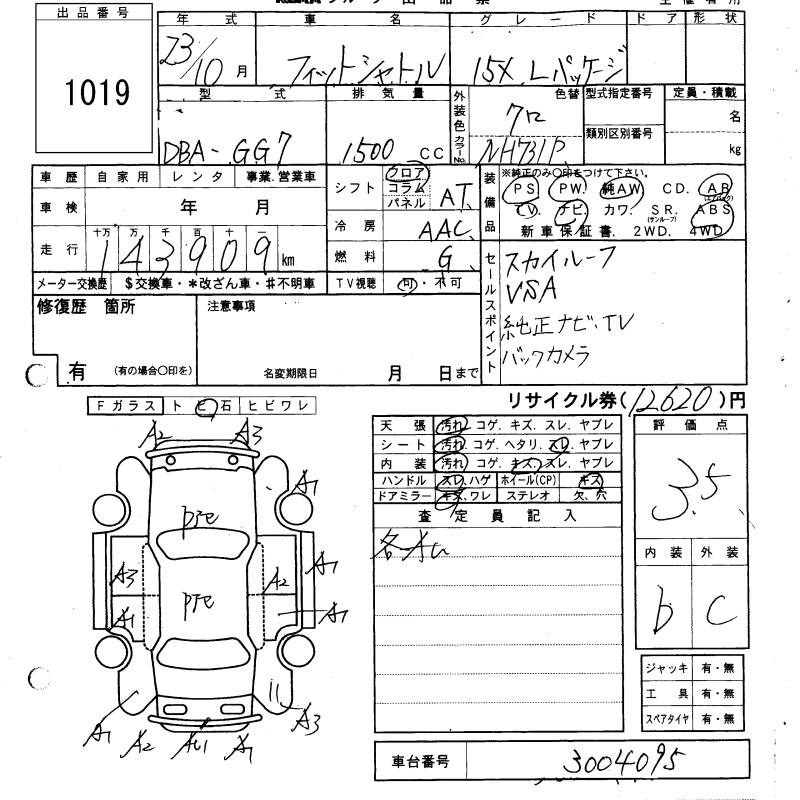 出品番号
1019
年式 車名 グレード ドア 形状
23/10月 フィットシャトル 15X Lパッケージ
型式 排気量 外装色 色替 型式指定番号 定員・積載
クロ 名
類別区別番号
DBA-GG7 1500cc カラーNo. NH731P kg
車歴 自家用 レンタ 事業.営業車
車検 年 月
走行 十万 万 千 百 十 一
143909km
メーター交換歴 $交換車・*改ざん車・#不明車
シフト フロア コラム パネル AT
冷房 AAC
燃料 G
TV視聴 可・不可
装備品 ※純正のみ〇印をつけて下さい。
PS PW. 純AW CD. AB (エアバック)
CV ナビ カワ. SR. (サンルーフ) ABS
新車保証書. 2WD. 4WD
セールスポイント
スカイルーフ
VSA
純正ナビ・TV
バックカメラ
修復歴 箇所
有 (有の場合〇印を)
注意事項
名変期限日 月 日まで
リサイクル券(12620)円
Fガラス ト ビ 石 ヒビワレ
天張 汚れ. コゲ. キズ. スレ. ヤブレ
シート 汚れ. コゲ. ヘタリ. スレ. ヤブレ
内装 汚れ. コゲ. キズ. スレ. ヤブレ
ハンドル スレ.ハゲ ホイール(CP) キズ
ドアミラー キズ.ワレ ステレオ 欠.穴
査定員記入
各AU
評価点
3.5
内装 外装
b C
ジャッキ 有・無
工具 有・無
スペアタイヤ 有・無
車台番号 3004095
A2 A3
A1
A1
A3 A2
A1 A1
A1 A2 AU1 A1 A3